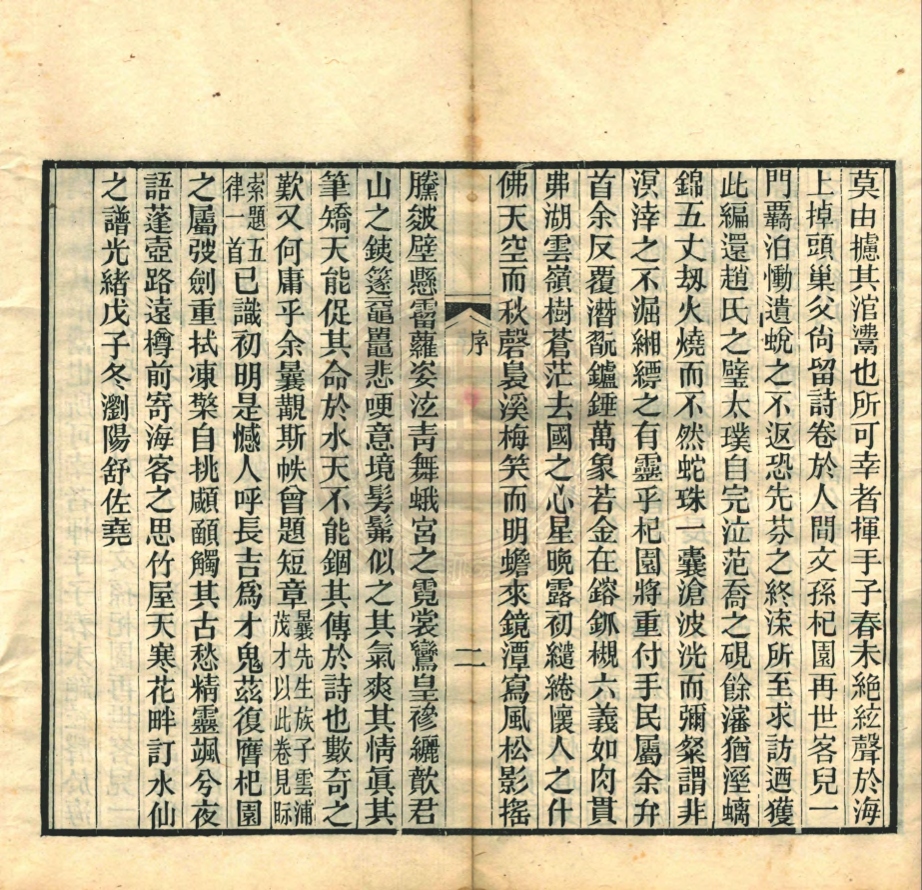 莫由攄其涫灊也所可幸者揮手子春未絶絃聲於海
上掉頭巢父尙留詩卷於人間文孫杞園再世客兒一
門覊泊慟遺蛻之不返恐先芬之終湥所至求訪迺獲
此編還趙氏之璧太璞自完泣范喬之硯餘瀋猶溼螭
錦五丈刼火燒而不然蛇珠一囊滄波洗而彌粲謂非
溟涬之不淈緗縹之有靈乎杞園將重付手民屬余弁
首余反覆潛翫鑪錘萬象若金在鎔釽槻六義如肉貫
弗湖雲嶺樹蒼茫去國之心星晚露初繾綣懷人之什
佛天空而秋磬裊溪梅笑而明蟾來鏡潭寫風松影搖
序
二
騰皴壁懸霤蘿姿泫靑舞蛾宮之霓裳鸞皇襂纚歕君
山之鐵籧黿鼉悲哽意境髣髴似之其氣爽其情眞其
筆矯天能促其命於水天不能錮其傳於詩也數奇之
歎又何庸乎余曩覯斯帙曾題短章曩先生族子雲浦茂才以此卷見眎
索題五律一首已識初明是憾人呼長吉爲才鬼茲復膺杞園
之屬弢劍重拭凍檠自挑顑頷觸其古愁精靈颯兮夜
語蓬壺路遠樽前寄海客之思竹屋天寒花畔訂水仙
之譜光緖戊子冬瀏陽舒佐堯